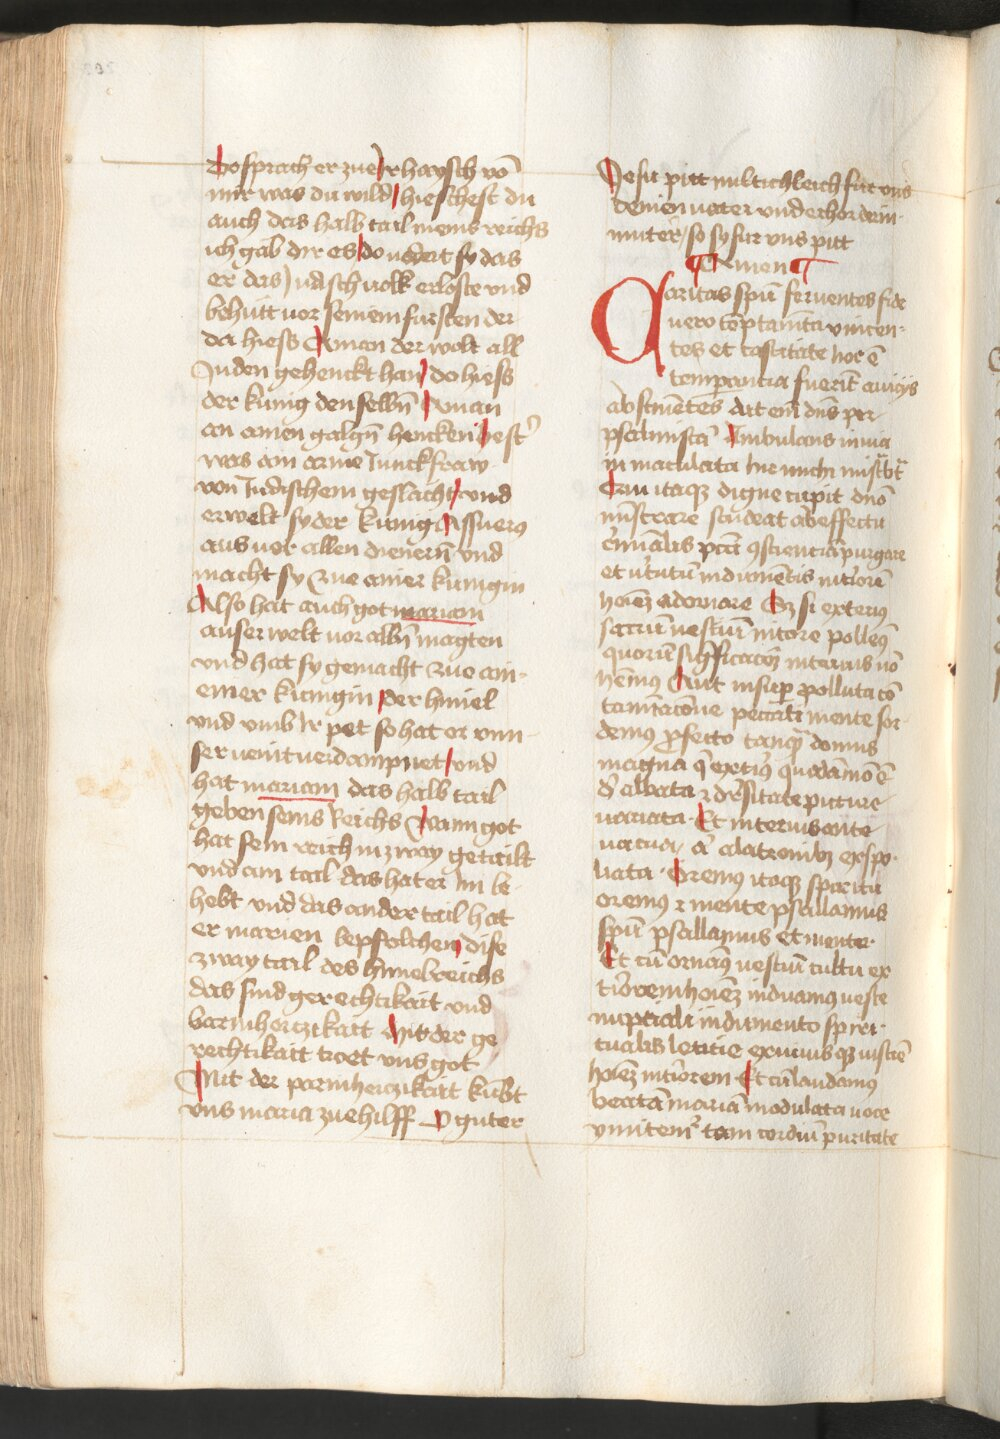 Do sprach er zue Ir haysch vō
mir was du wild hieschest du
auch das halb tail meins reichs
ich gab dir es do vodert sy das
er das Judasch volk erloste vnd
behutt vor seinem fursten der
da hiess Aman der wolt all
Juden gehenckt han do hiess
der kunig denselbn̄ Aman
an ainen galgn̄ hencken hest᷑
was ain arme Junckfraw
von Iudischem geslacht vnd
erwelt sy der kunig Assuerꝰ
aus vor allen dienern̄ vnd
macht sy zue ainer kunigin
Also hat auch got mariam
auserwelt vor albn̄ magten
vnd hat sy gemacht zue ain
einer kunigin der himel
vnd vmb Ir pet so hat er vnn
ser veint verdampnet vnd
hat mariam das halb tail
geben seins Reichs Wann got
hat sein reich in zway getailt
vnd ain tail das hat er Im be
hebt vnd das ander tail hat
er marien bepfolchen dise
zway tail des himelreichs
das sind gerechtikait vnd
barmhertzikait Mit der ge
rechtikait troet vns got
Mit der parmhertzikait kūbt
vns maria zue hilff O guter
Jesu pitt miltichleich fur vns
deinen vater vnd erhor dein
muter so sy fur vns pitt
Amen
Caritas spū feruentes fide
vero
tes et castitate hoc ē
temperancia fuerīt amicijs
abstinentes Ait enī dn̄s per
psalmistā Ambulans in via
in maculata hic michi mīstᵃbᵗ
Qui itaqꝫ digne cupit dn̄o
mīstrare studeat ab effectu
pctī ꝯscienciā purgare
et v̓tutū indumentis int̓iorē
hoīeꝫ adornare Qꝫ si exteriꝰ
sacrū vestiū nitore pollemꝰ
quorū significatōꝫ interius nō
hēmus Aut insup̱ polluta cō
tamiacione peccati mente sor
demus p̱fecto tanqᵃ domus
magna q̄ ext̓iꝰ quodāmō ē
dealbata ⁊ picture
variata Et interius ante
vacua a latronibꝫ expo
liata Oremꝰ itaqꝫ spiritu
oremꝰ ⁊ mente psallamus
spū psallamus et mente
Et cū ornamꝰ vestiū cultu ex
t̓iorem hoīeꝫ induamꝰ veste
nuptiali indumento spiri
tualis leticie exuuiis qꝫ
hoīeꝫ int̓iorem Et cū laudamꝰ
beatā mariā modulata voce
vnitem᷑ tam cordiū puritate